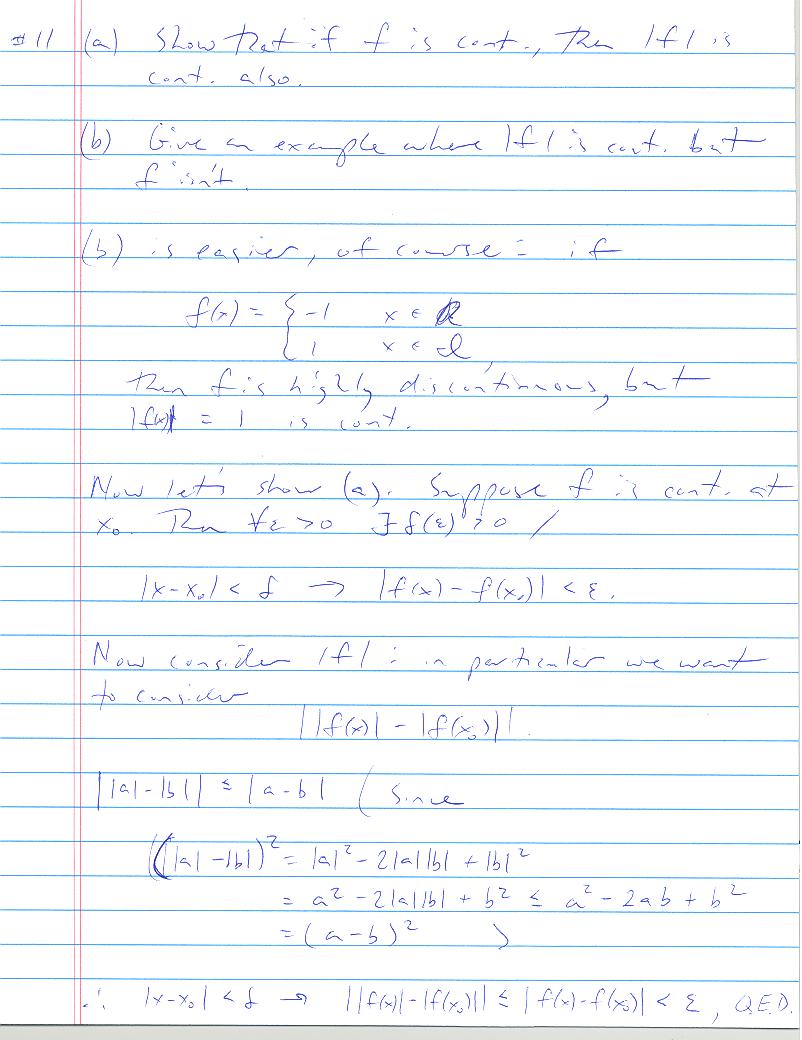 #11 (a) Show that if f is cont., then |f| is
cont. also.
(b) Give an example where |f| is cont. but
f isn't.
(b) is easier, of course: if
f(x) = { -1 x ∈ Q
1 x ∈ I,
then f is highly discontinuous, but
|f(x)| = 1 is cont.
Now let's show (a). Suppose f is cont. at
x₀. Then ∀ε > 0 ∃ δ(ε) > 0 /
|x-x₀| < δ → |f(x) - f(x₀)| < ε.
Now consider |f| : in particular we want
to consider
||f(x)| - |f(x₀)||.
||a| - |b|| ≤ |a-b| (since
(|a| - |b|)² = |a|² - 2|a||b| + |b|²
= a² - 2|a||b| + b² ≤ a² - 2ab + b²
= (a-b)² )
∴ |x-x₀| < δ → ||f(x)| - |f(x₀)|| ≤ |f(x) - f(x₀)| < ε, Q.E.D.